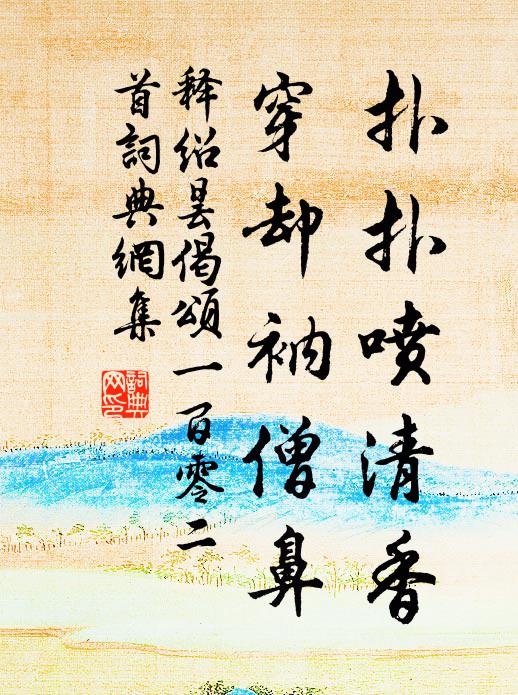 扑扑喷清香
穿却衲僧鼻
释绍昙偈颂一百零二
首詞典網集
詞典
网印